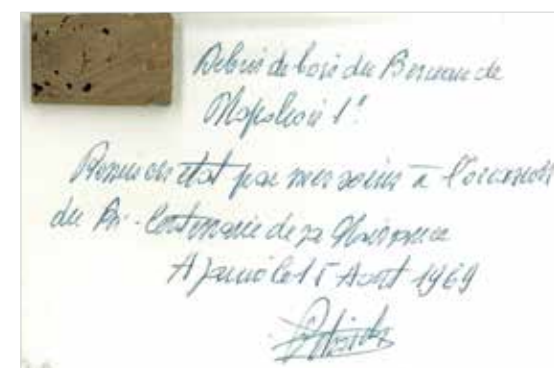 Débris de bois du Berceau de
Napoléon 1er
Remis en état par mes soins à l'occasion
du Bi-Centenaire de sa Naissance
Ajaccio le 15 Août 1969